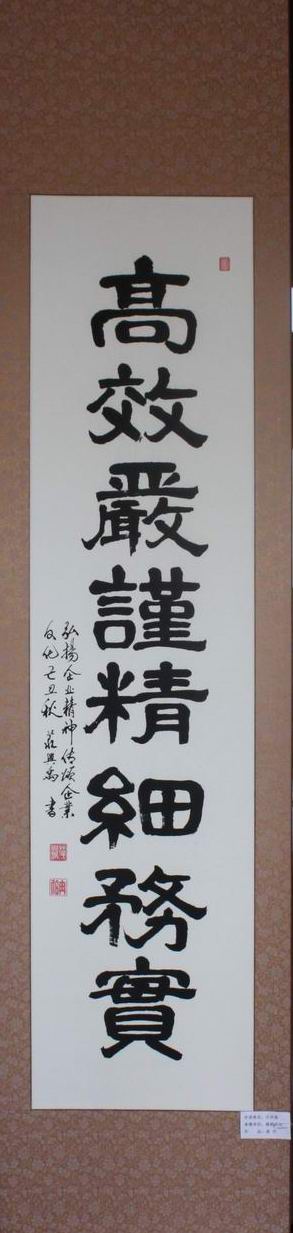 高效嚴謹精細務實
弘揚企业精神傳頌企業
文化己丑秋莊興禹書